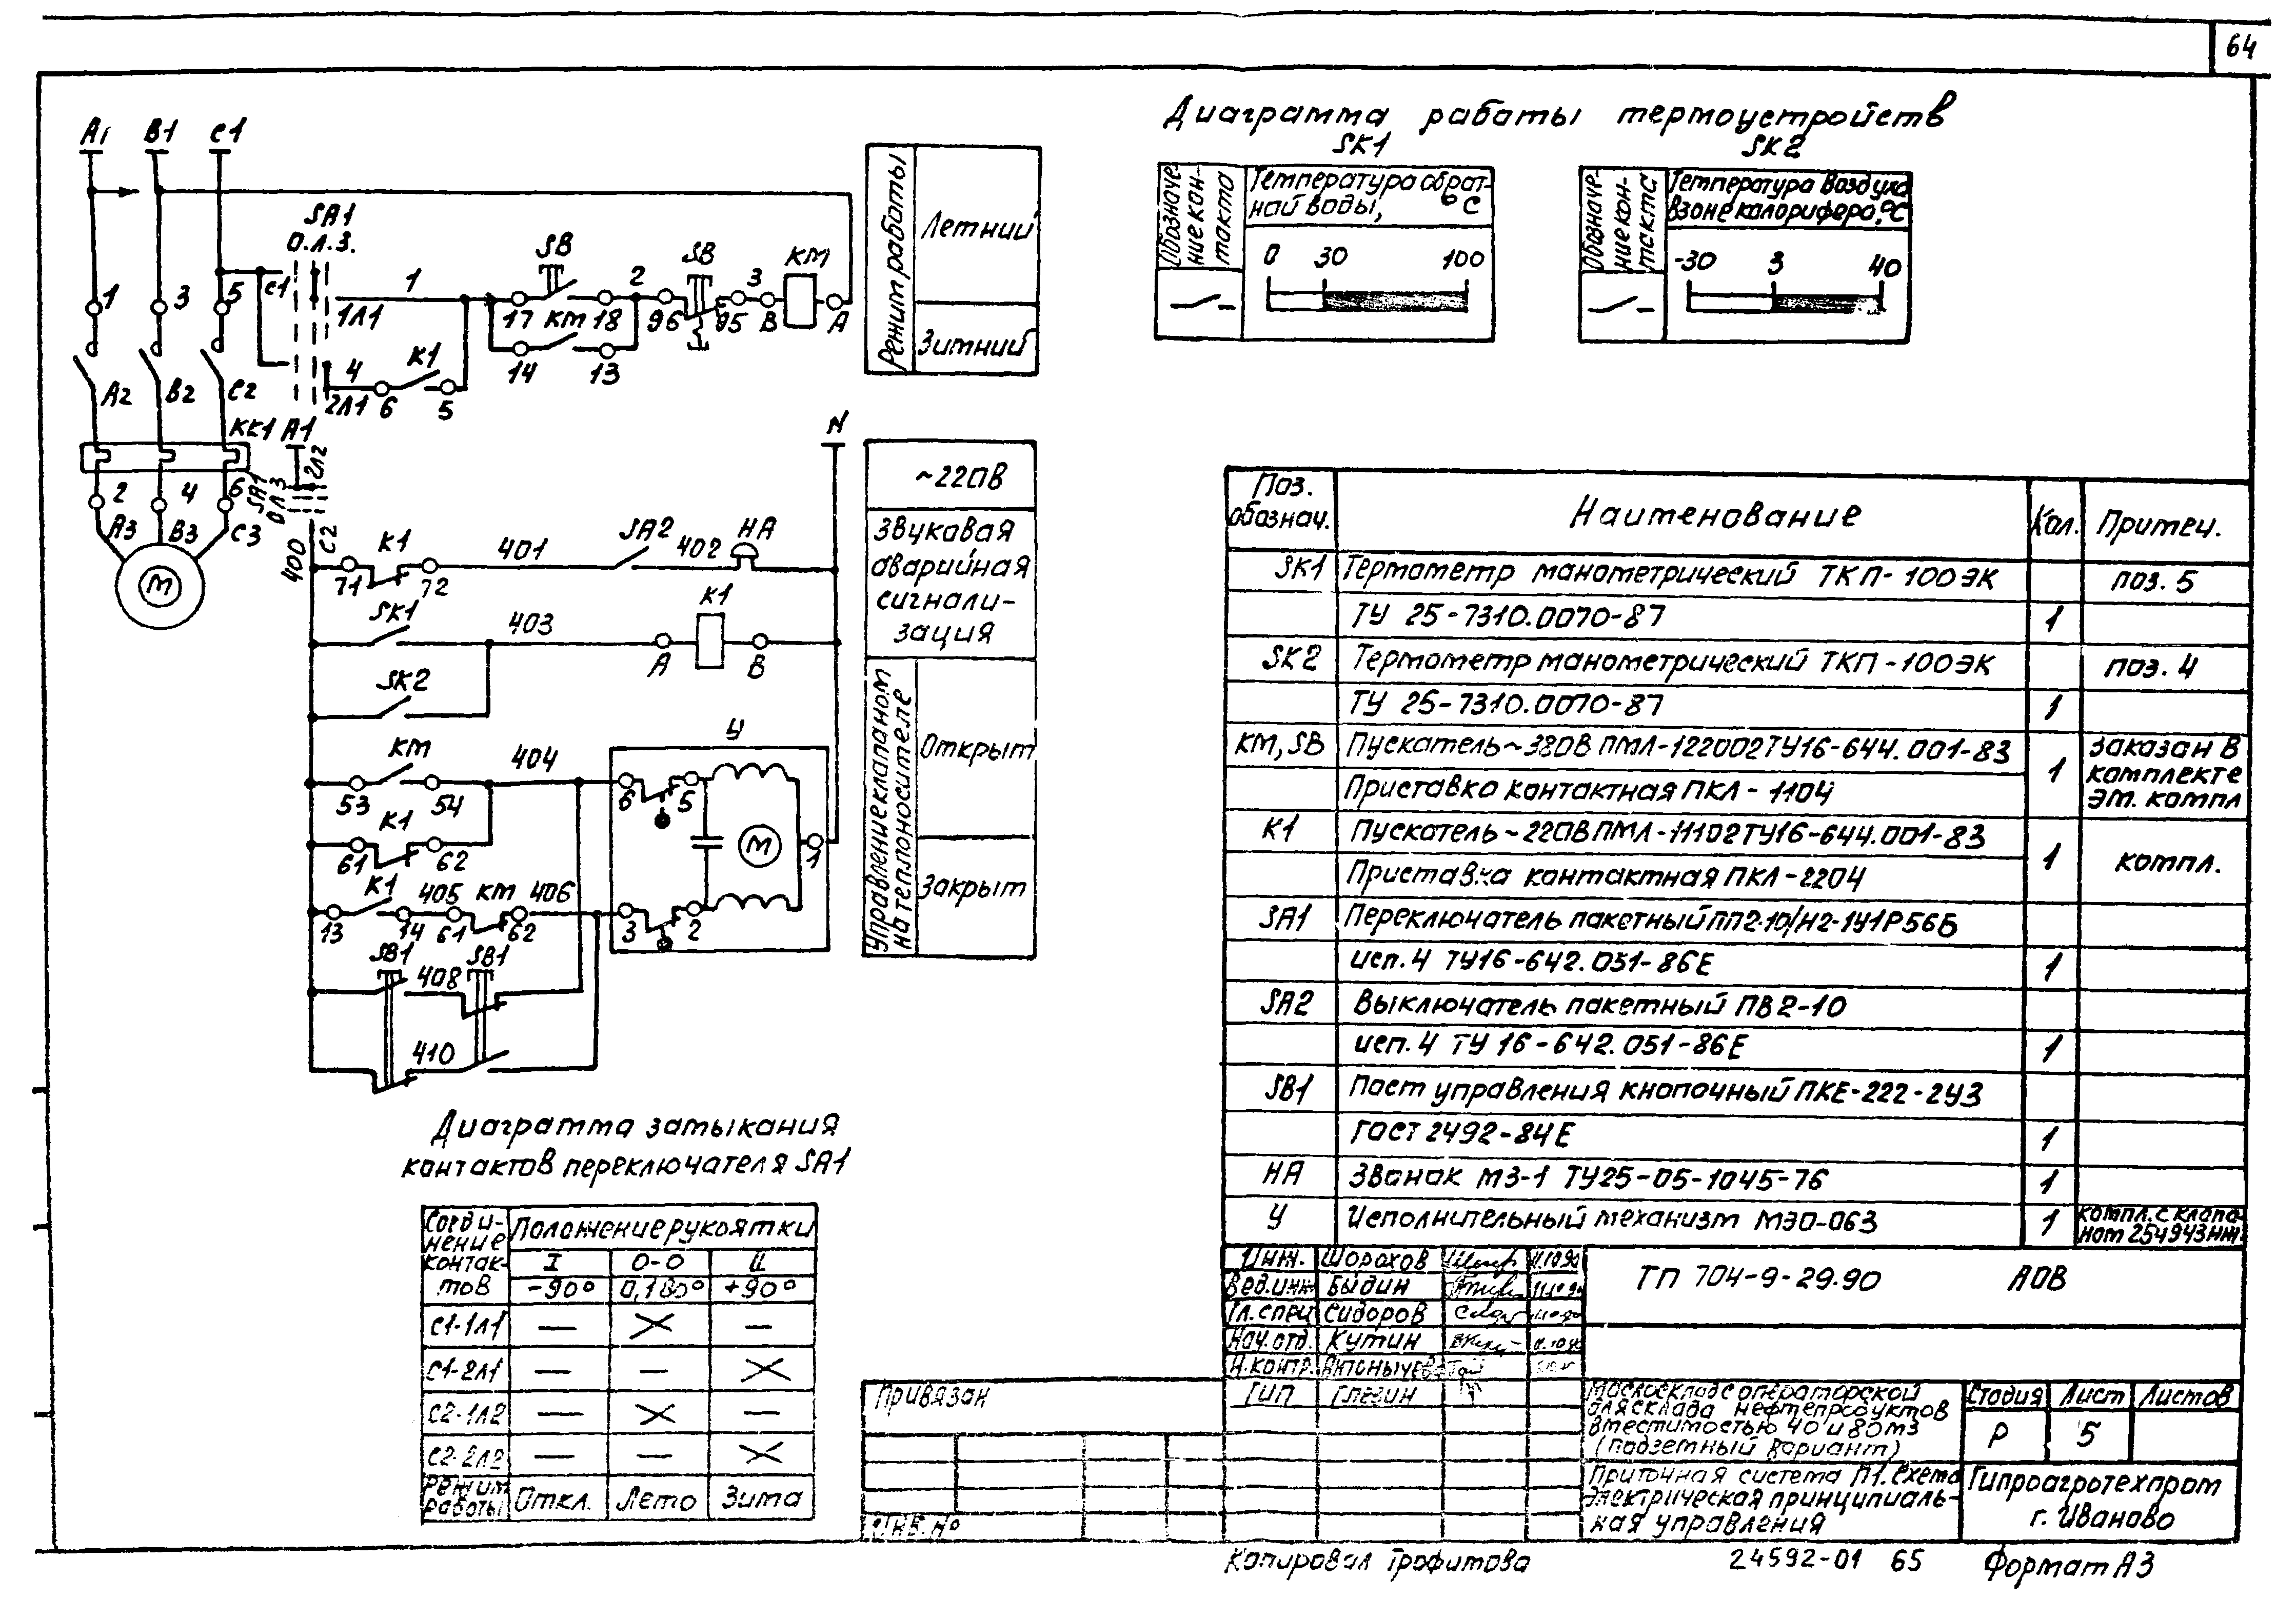 64
А1 В1 С1
SA1
О.Л.З.
С1
1
1Л1
SB
2
SB
3
КМ
1 3 5
17 КМ 18 96 95 В А
14 13
4
2Л1
К1
6 5
А2 В2 С2
КК1
А1
2Л2
SA1
ОЛЗ
2 4 6
А3 В3 С3
М
400
С2
N
К1
71 72
401
SA2
402
НА
SK1
403
К1
А В
SK2
У
КМ
53 54
404
К1
61 62
6 5
М
1
К1
13 14
405
КМ
61 62
406
3 2
SB1
408
SB1
410
Режим работы
Летний
Зимний
~220В
Звуковая
аварийная
сигнали-
зация
Управление клапаном
на теплоносителе
Открыт
Закрыт
Диаграмма работы термоустройств
SK1
SK2
Обозначе-
ние кон-
такта
Температура обрат-
ной воды, °С
0 30 100
Обозначе-
ние кон-
такта
Температура воздуха
в зоне калорифера,°С
-30 3 40
Поз.
обознач.
Наименование
Кол.
Примеч.
SK1 Термометр манометрический ТКП-100ЭК поз. 5
ТУ 25-7310.0070-87 1
SK2 Термометр манометрический ТКП-100ЭК поз. 4
ТУ 25-7310.0070-87 1
КМ, SB Пускатель~380В ПМЛ-122002ТУ16-644.001-83 1 заказан в
комплекте
эм. компл
Приставка контактная ПКЛ-1104
К1 Пускатель~220В ПМЛ-11102ТУ16-644.001-83 1 компл.
Приставка контактная ПКЛ-2204
SA1 Переключатель пакетный ПП2-10/Н2-1У1Р56Б
исп.4 ТУ16-642.051-86Е 1
SA2 Выключатель пакетный ПВ2-10
исп.4 ТУ 16-642.051-86Е 1
SB1 Пост управления кнопочный ПКЕ-222-2У3
ГОСТ 2492-84Е 1
НА Звонок МЗ-1 ТУ25-05-1045-76 1
У Исполнительный механизм МЭО-063 1 компл. с клапа-
ном 25ч943нж.
Диаграмма замыкания
контактов переключателя SA1
Соеди-
нение
контак-
тов
Положение рукоятки
I О-О II
-90° 0,180° +90°
С1-1Л1 — X —
С1-2Л1 — — X
С2-1Л2 — X —
С2-2Л2 — — X
Режим
работы
Откл. Лето Зима
Инж. Шорохов
Вед.инж Быдин
Гл.спец Сидоров
Нач.отд. Кутин
Н.контр.
ГИП Глезин
ТП 704-9-29.90 АОВ
Привязан
Инв.№
Маслосклад с операторской
для склада нефтепродуктов
вместимостью 40 и 80м3
(подземный вариант)
Стадия Лист Листов
Р 5
Приточная система П1. Схема
электрическая принципиаль-
ная управления
Гипроагротехпром
г. Иваново
Копировал Трофимова
24592-01 65
Формат А3